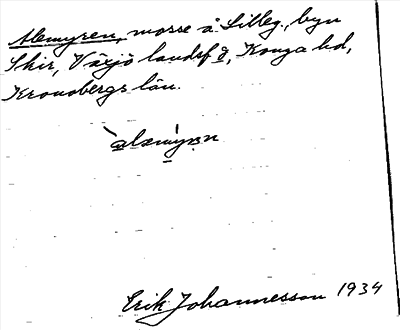 Alemyren, mosse å Lilleg., byn
Skir, Växjö landsf g, Konga hd,
Kronobergs län.
àlemỳrn
Erik Johannesson 1934